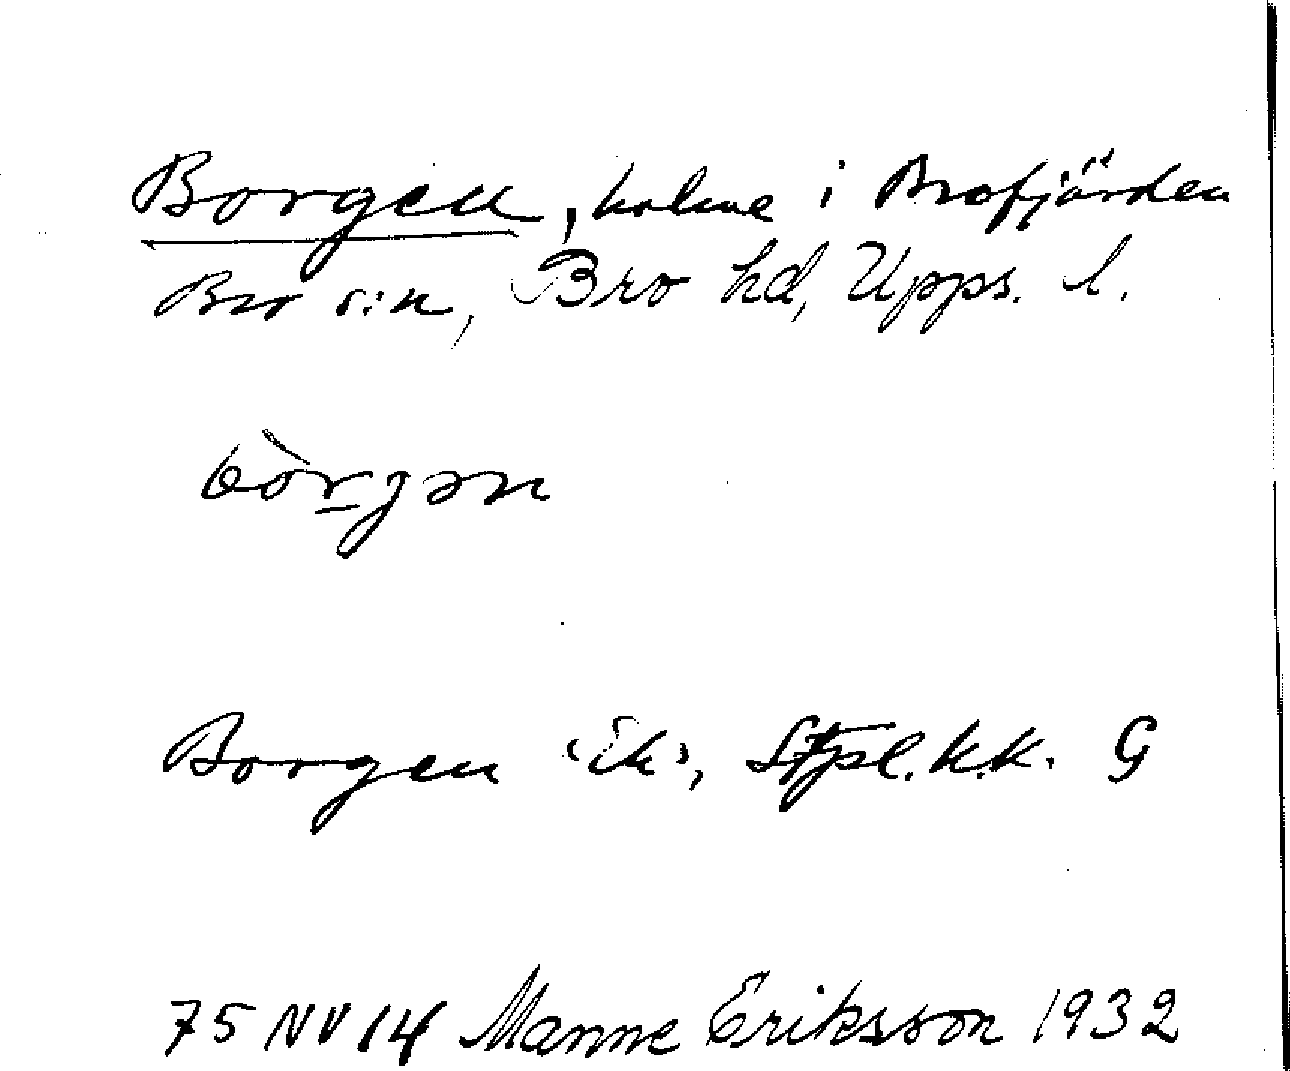 Borgen, holme i Brofjärden
Bro s:n, Bro hd, Upps. l.
bòrgən
Borgen ‹Ek›, Stfpl. k.k. G
75 NV 14 Manne Eriksson 1932